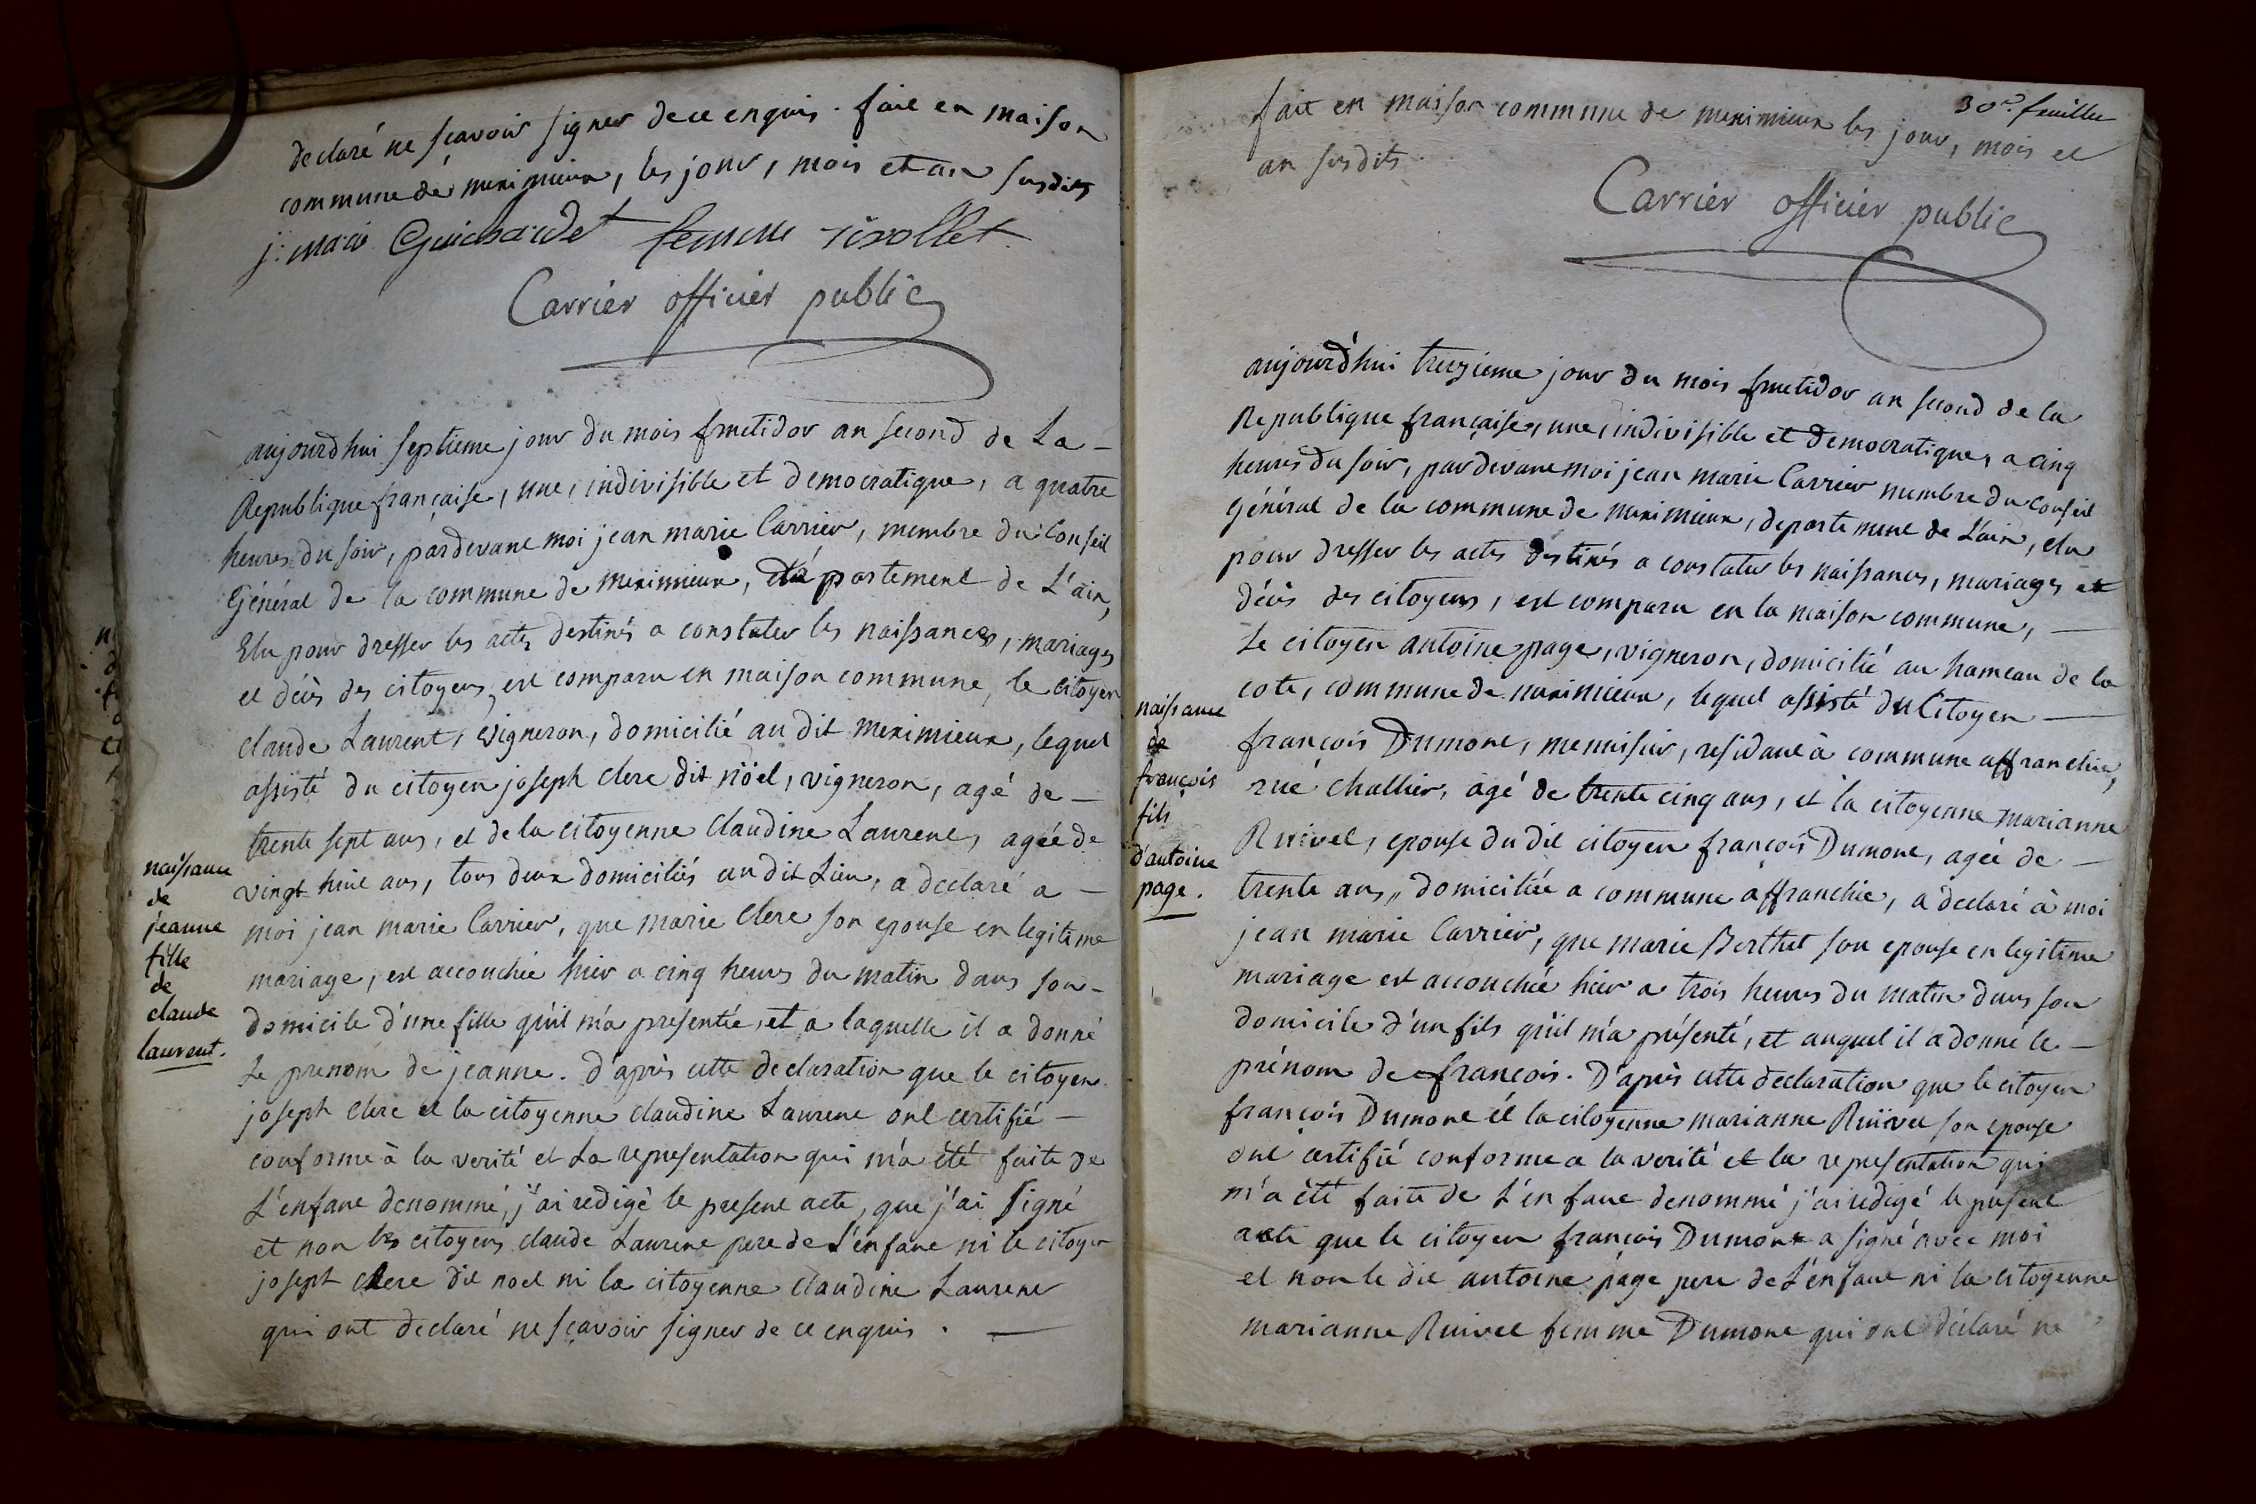 declaré ne sçavoir signer de ce enquis. fait en maison
commune de meximieux, les jour, mois et an susdits
j. marie Guichardet femme rivollet
Carrier officier public
aujourd'hui septieme jour du mois fructidor an second de La -
Republique française, une, indivisible et democratique, a quatre
heures du soir, pardevant moi jean marie Carrier, membre du Conseil
Général de la commune de meximieux, département de L'ain,
Elu pour dresser les actes destinés a constater les naissances, mariages
et décès des citoyens, est comparu en maison commune, le citoyen
claude Laurent, vigneron, domicilié au dit meximieux, lequel
assisté du citoyen joseph clerc dit nöel, vigneron, agé de -
trente sept ans, et de la citoyenne Claudine Laurent, agée de
vingt huit ans, tous deux domiciliés au dit Lieu, a declaré a -
moi jean marie Carrier, que marie Clerc son epouse en legitime
mariage, est accouchée hier a cinq heures du matin dans son -
domicile d'une fille qu'il m'a presentée, et a laquelle il a donné
Le prenom de jeanne. d'après cette declaration que le citoyen
joseph clerc et la citoyenne claudine Laurent ont certifié -
conforme à la verité et La representation qui m'a été faite de
L'enfant denommé, j'ai redigé le present acte, que j'ai signé
et non les citoyens claude Laurent pere de L'enfant ni le citoyen
joseph clerc dit noel ni la citoyenne claudine Laurent
qui ont declaré ne sçavoir signer de ce enquis. -
naissance
de
jeanne
fille
de
claude
laurent.
30e. feuillet
fait en maison commune de meximieux les jour, mois et
an susdits.
Carrier officier public
aujourd'hui treizieme jour du mois fructidor an second de la
Republique française, une, indivisible et democratique, a cinq
heures du soir, pardevant moi jean marie Carrier membre du Conseil
général de la commune de meximieux, departement de L'ain, elu
pour dresser les actes destinés a constater les naissances, mariages et
décès des citoyens, est comparu en la maison commune, -
Le citoyen antoine page, vigneron, domicilié au hameau de la
cote, commune de meximieux, lequel assisté du Citoyen -
françois Dumont, menuisier, residant à commune affranchie,
rue challier, agé de trente cinq ans, et la citoyenne marianne
Ruivet, epouse du dit citoyen françois Dumont, agée de -
trente ans,, domiciliée a commune affranchie, a declaré à moi
jean marie Carrier, que marie Berthet son epouse en legitime
mariage est accouchée hier a trois heures du matin dans son
domicile d'un fils qu'il m'a présenté, et auquel il a donné le -
prénom de françois. D'après cette declaration que le citoyen
françois Dumont et la citoyenne marianne Ruivet son epouse
ont certifié conforme a la verité et la representation qui
m'a été faite de L'enfant denommé j'ai redigé le present
acte que le citoyen françois Dumont a signé avec moi
et non le dit antoine page pere de L'enfant ni la citoyenne
marianne Ruivet femme Dumont qui ont déclaré ne
naissance
de
françois
fils
d'antoine
page.